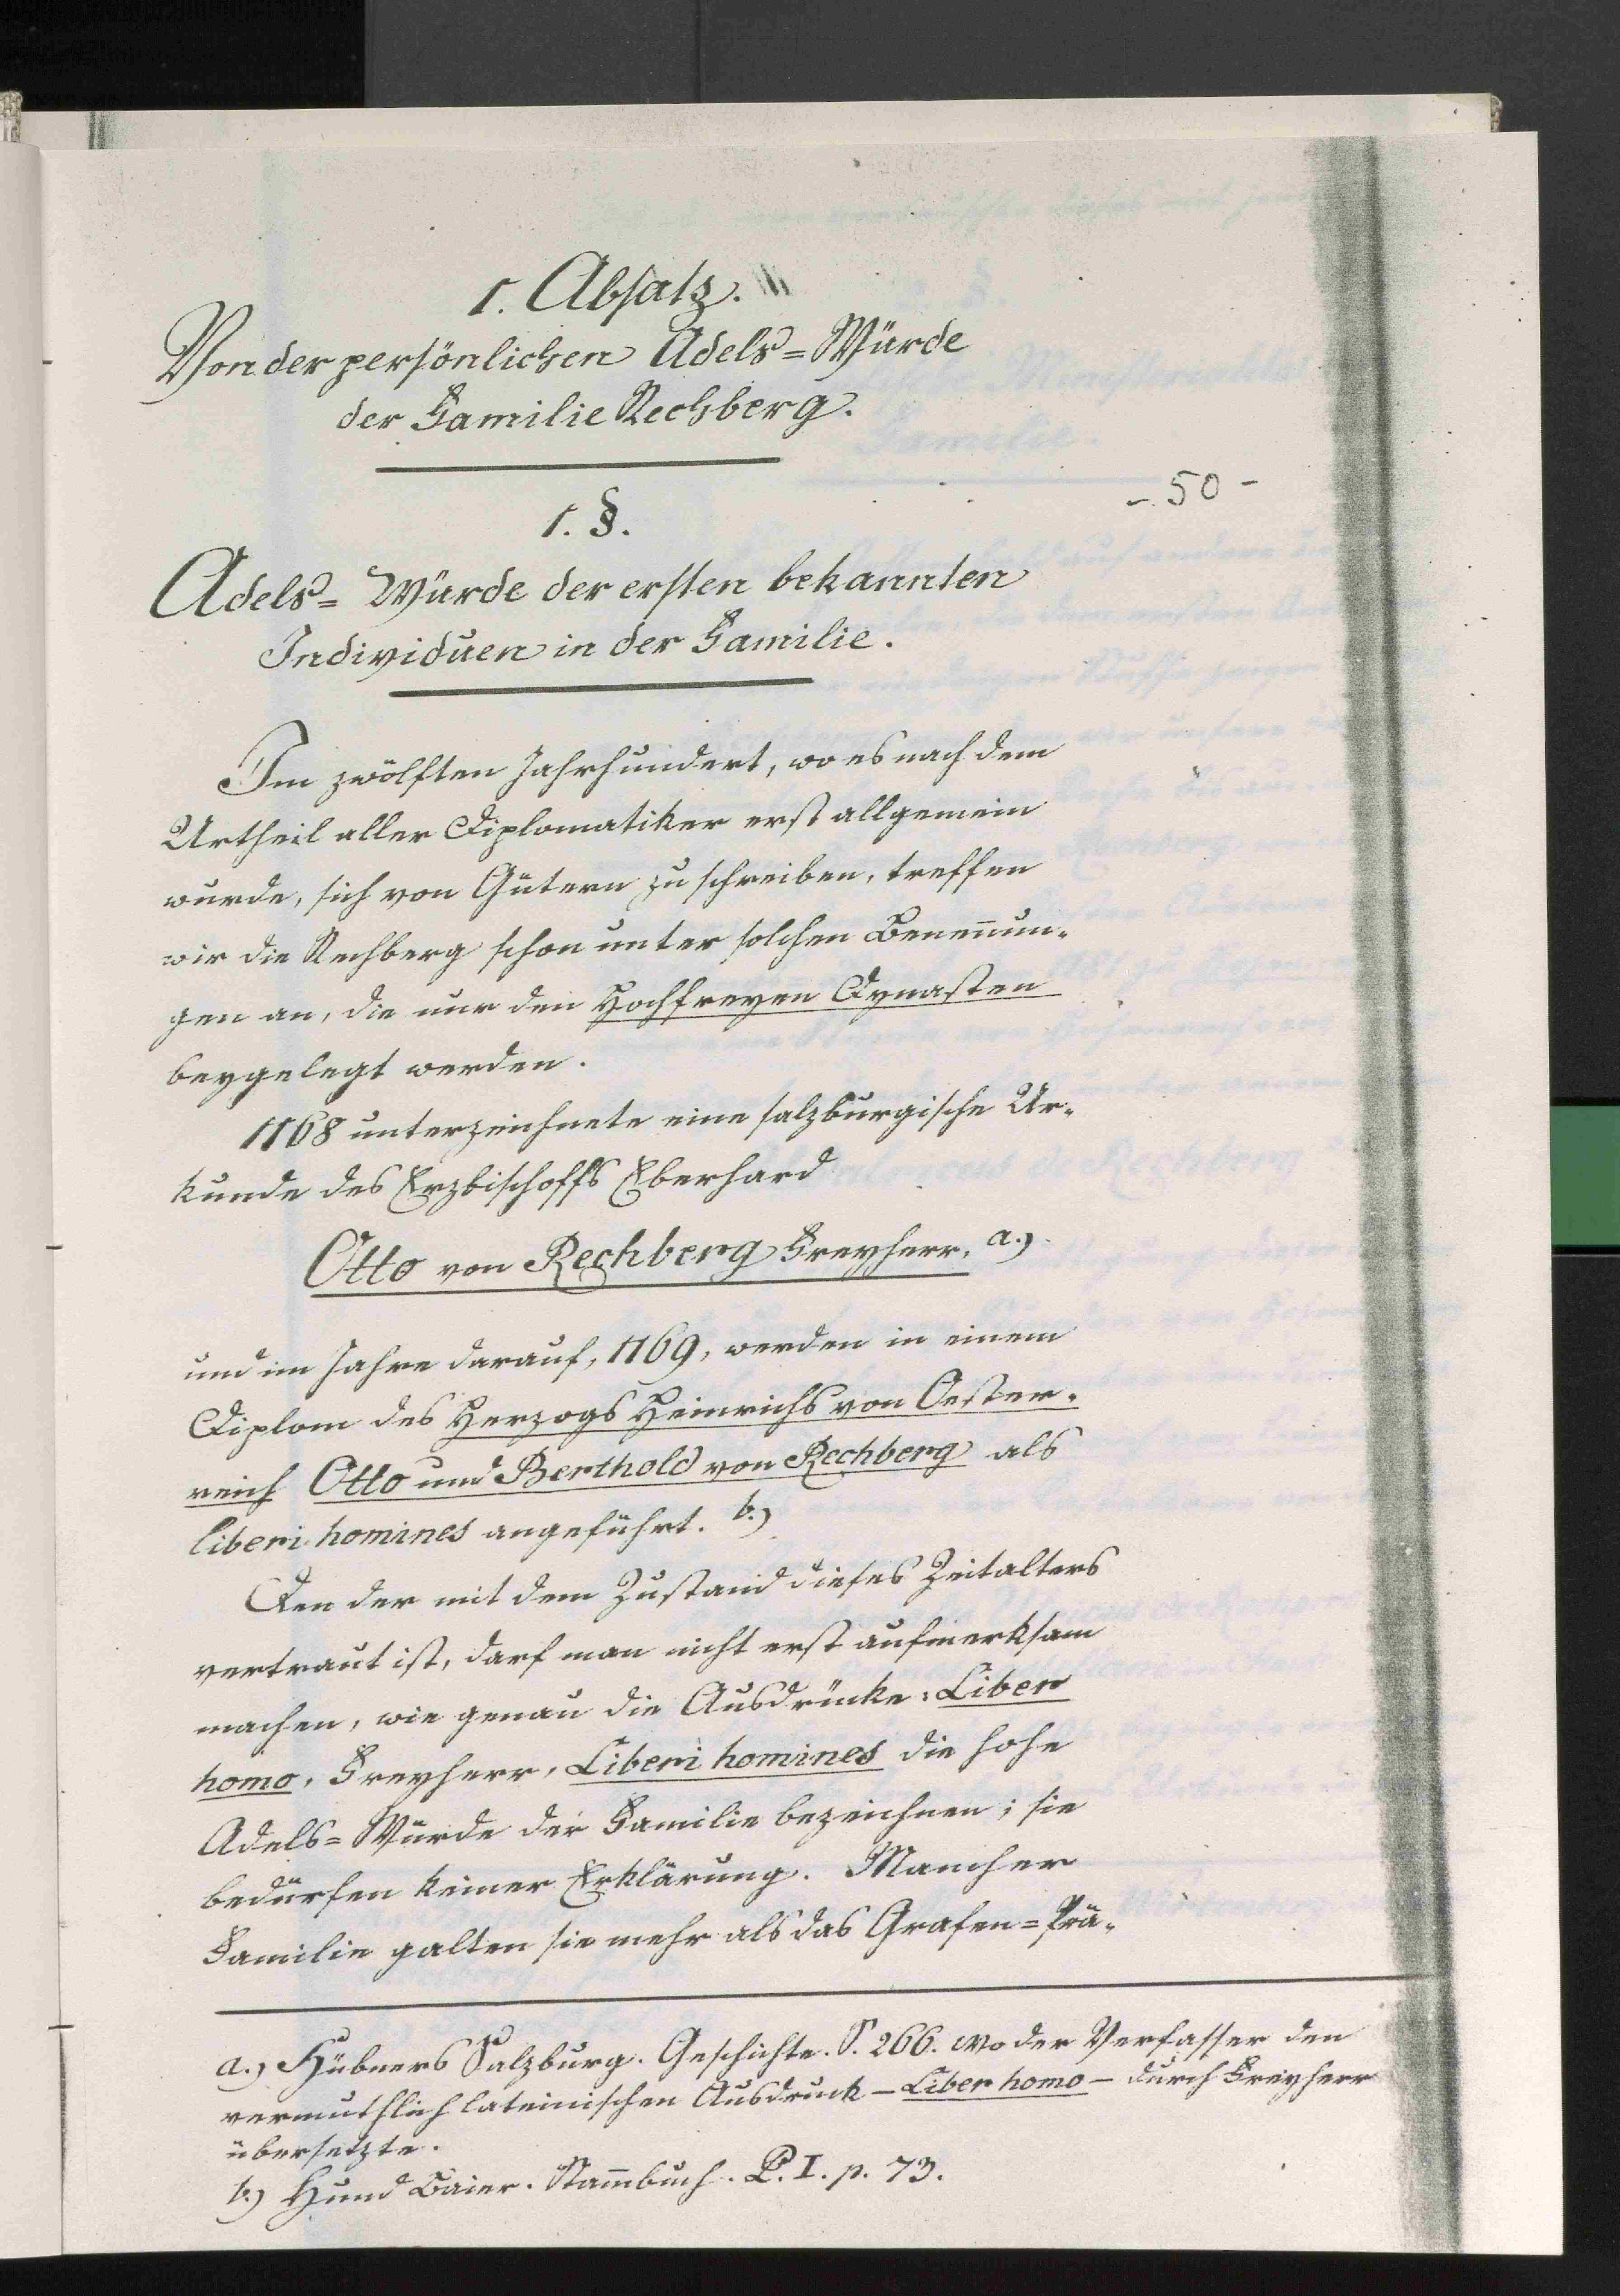 1. Absatz.
Von der persönlichen Adels=Würde
der Familie Rechberg.
- 50 -
1. §.
Adels= Würde der ersten bekannten
Individuen in der Familie.
Im zwölften Jahrhundert, wo es nach dem
Urtheil aller Diplomatiker erst allgemein
wurde, sich von Gütern zu schreiben, treffen
wir die Rechberg schon unter solchen Benen̄un-
gen an, die nur den Hochfreyen Dynasten
beygelegt werden.
1168 unterzeichnete eine salzburgische Ur-
kunde des Erzbischoffs Eberhard
Otto von Rechberg Freyherr, a.)
und im Jahre darauf, 1169, werden in einem
Diplom des Herzogs Heinrichs von Oester-
reich Otto und Berthold von Rechberg als
liberi homines angeführt. b.)
Den der mit dem Zustand dieses Zeitalters
vertraut ist, darf man nicht erst aufmerksam
machen, wie genau die Ausdrücke: Liber
homo, Freyherr, Liberi homines die hohe
Adels=Würde der Familie bezeichnen; sie
bedürfen keiner Erklärung. Mancher
Familie galten sie mehr als das Grafen=Prä-
a.) Hübners Salzburg. Geschichte. S. 266. wo der Verfasser den
vermuthlich lateinischen Ausdruck – Liber homo – durch Freyherr
übersetzte.
b.) Hund Baier. Stam̄buch. P. I. p. 73.